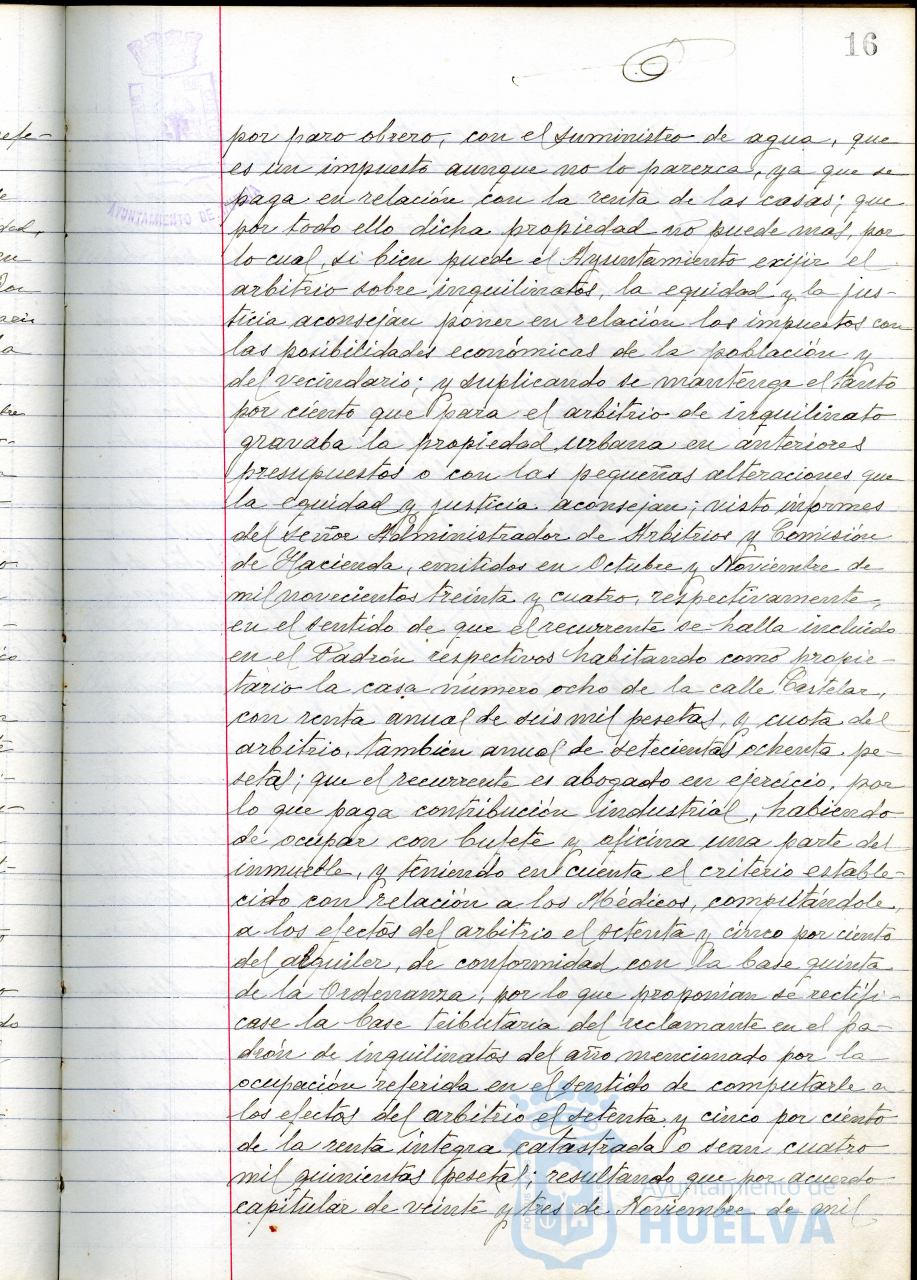 16
AYUNTAMIENTO DE
por paro obrero, con el suministro de agua, que
es un impuesto aunque no lo parezca, ya que se
paga en relación con la renta de las casas; que
por todo ello dicha propiedad no puede mas, por
lo cual, si bien puede el Ayuntamiento exijir el
arbitrio sobre inquilinatos, la equidad y la jus-
ticia aconsejan poner en relación los impuestos con
las posibilidades económicas de la población y
del vecindario; y suplicando se mantenga el tanto
por ciento que para el arbitrio de inquilinato
gravaba la propiedad urbana en anteriores
presupuestos o con las pequeñas alteraciones que
la equidad y justicia aconsejan; visto informes
del señor Administrador de Arbitrios y Comisión
de Hacienda, emitidos en Octubre y Noviembre de
mil novecientos treinta y cuatro, respectivamente,
en el sentido de que el recurrente se halla incluido
en el Padrón respectivos habitando como propie-
tario la casa número ocho de la calle Castelar,
con renta anual de seis mil pesetas, y cuota del
arbitrio, también anual de setecientas ochenta pe-
setas; que el recurrente es abogado en ejercicio, por
lo que paga contribución industrial, habiendo
de ocupar con bufete y oficina una parte del
inmueble, y teniendo en cuenta el criterio estable-
cido con relación a los Médicos, computándole,
a los efectos del arbitrio el setenta y cinco por ciento
del alquiler, de conformidad con la base quinta
de la Ordenanza, por lo que proponían se rectifi-
case la base tributaria del reclamante en el pa-
drón de inquilinatos del año mencionado por la
ocupación referida en el sentido de computarle a
los efectos del arbitrio el setenta y cinco por ciento
de la renta íntegra catastrada o sean cuatro
mil quinientas pesetas; resultando que por acuerdo
capitular de veinte y tres de Noviembre de mil
Ayuntamiento de
HUELVA